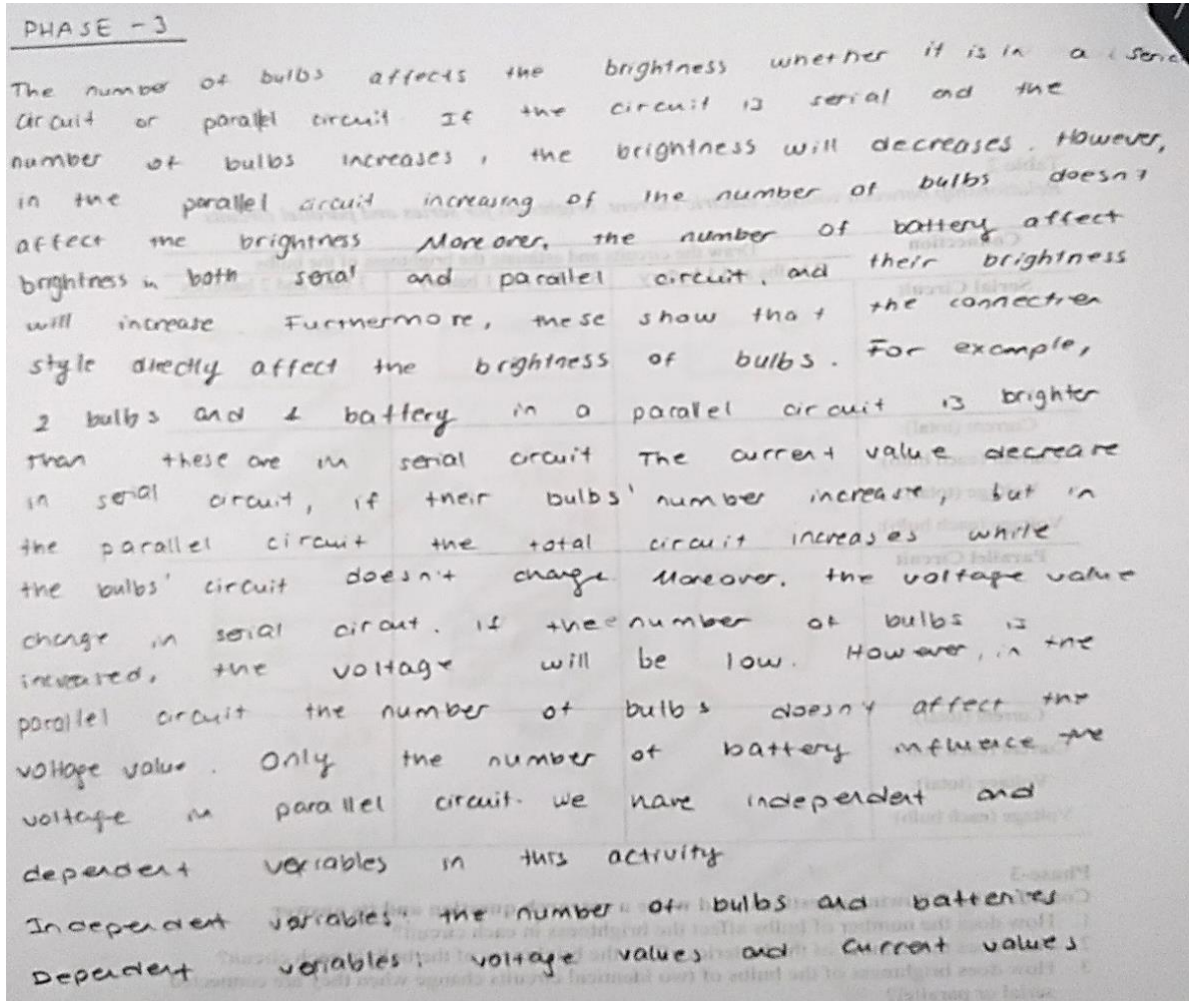 PHASE - 3
The number of bulbs affects the brightness whether it is in a seria
circuit or parallel circuit If the circuit is serial and the
number of bulbs increases, the brightness will decreases. However,
in the parallel circuit increasing of the number of bulbs doesn't
affect the brightness Moreover, the number of battery affect
brightness in both serial and parallel circuit, and their brightness
will increase Furthermore, these show that the connection
style directly affect the brightness of bulbs. For example,
2 bulbs and 1 battery in a parallel circuit is brighter
than these are in serial circuit The current value decreare
in serial circuit, if their bulbs' number increase, but in
the parallel circuit the total circuit increases while
the bulbs' circuit doesn't change Moreover, the voltage value
change in serial circuit. if the number of bulbs is
increased, the voltage will be low. However, in the
parallel circuit the number of bulbs doesn't affect the
voltage value. Only the number of battery influence the
voltage in parallel circuit. We have independent and
dependent variables in this activity
Independent variables: the number of bulbs and batteries
Dependent variables: voltage values and current values